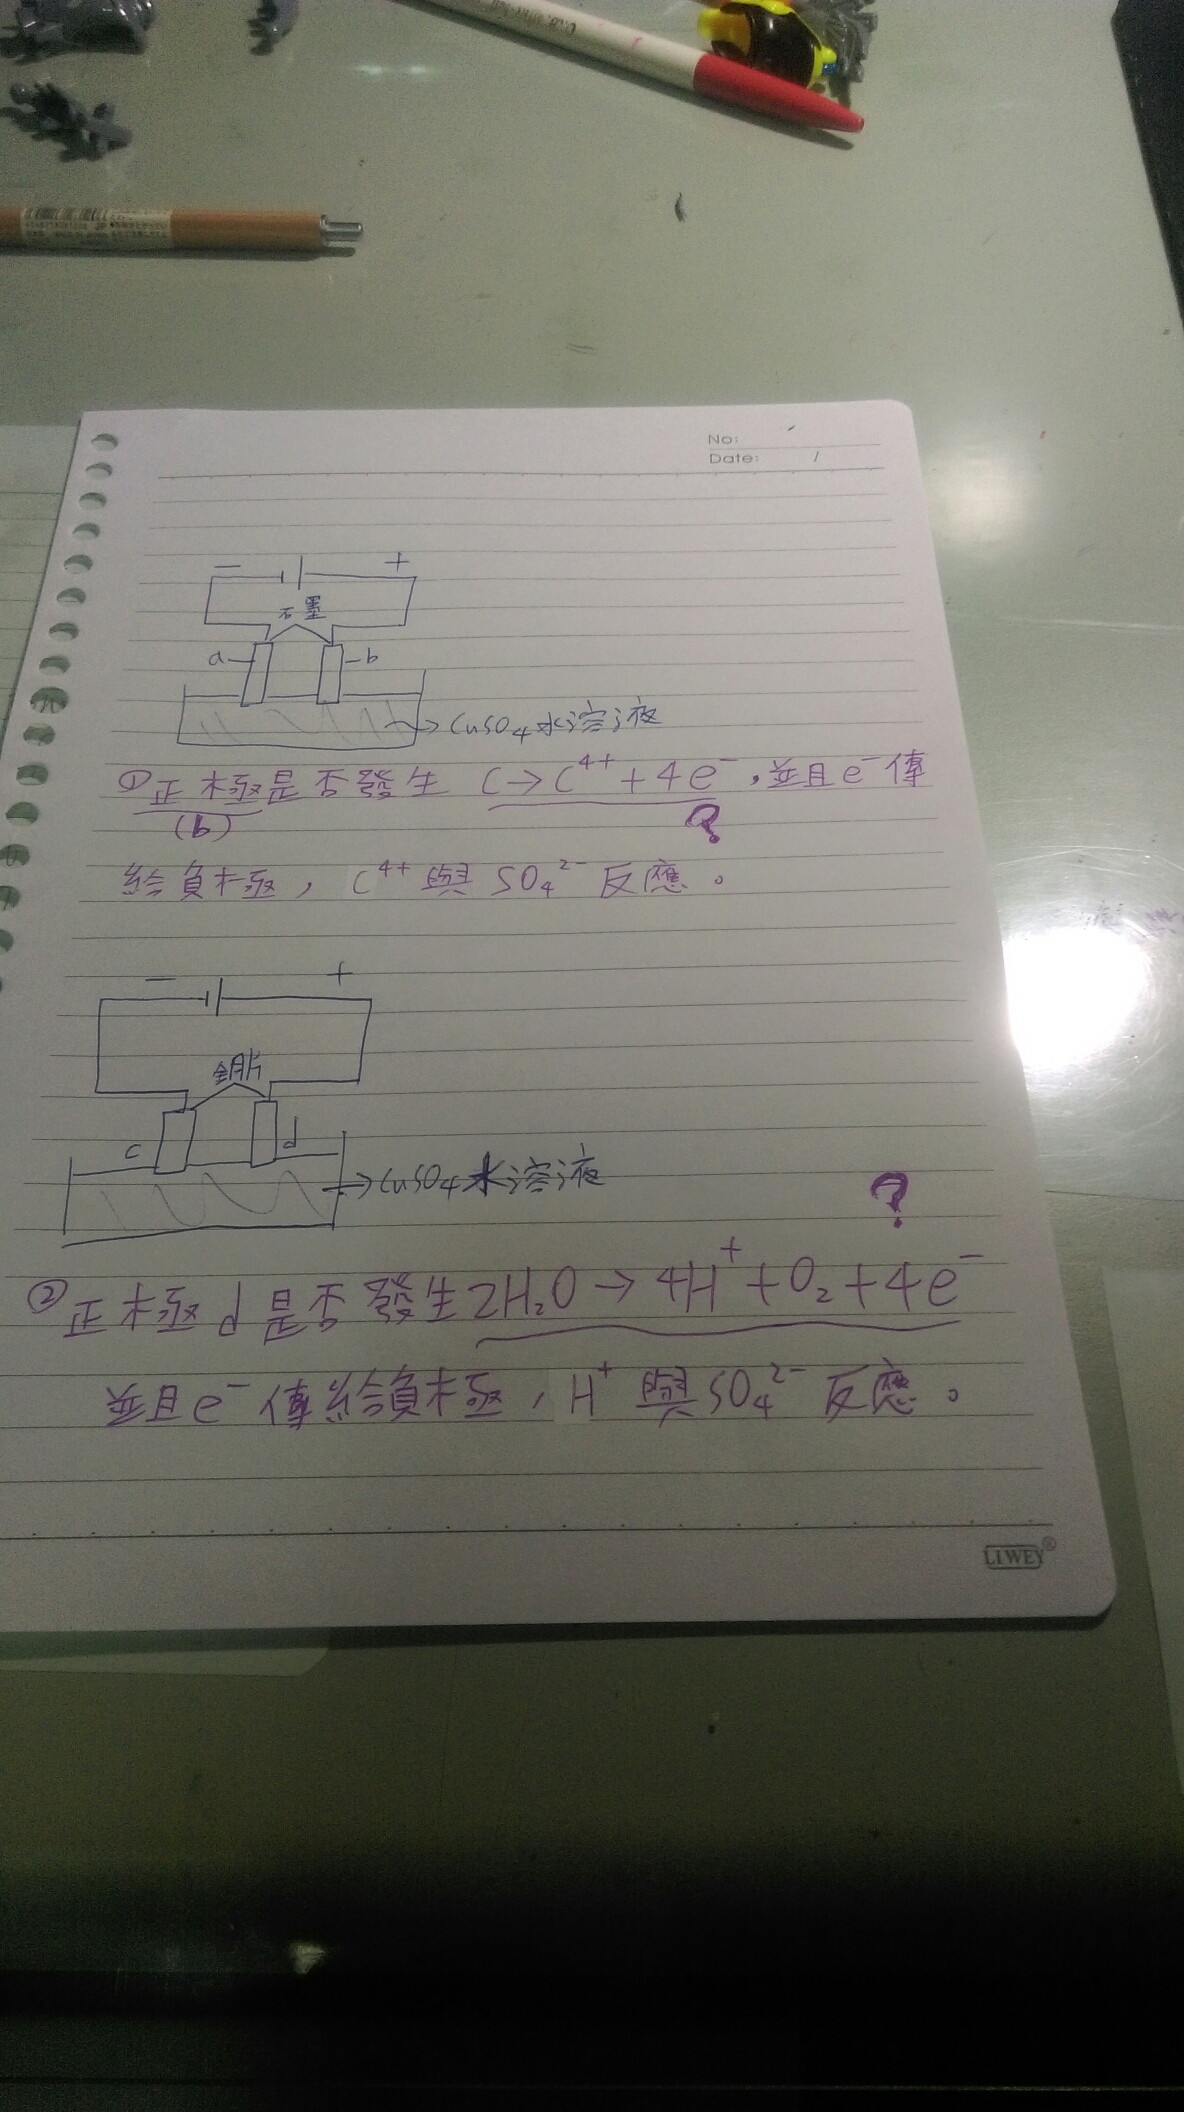 No:
Date: /
− +
石墨
a b
CuSO4水溶液
①正極是否發生 C→C⁴⁺+4e⁻,並且e⁻傳
(b) ?
給負極, C⁴⁺與SO₄²⁻反應。
− +
銅片
c d
CuSO4水溶液
?
②正極d是否發生2H₂O→4H⁺+O₂+4e⁻
並且e⁻傳給負極, H⁺與SO₄²⁻反應。
LIWEY®